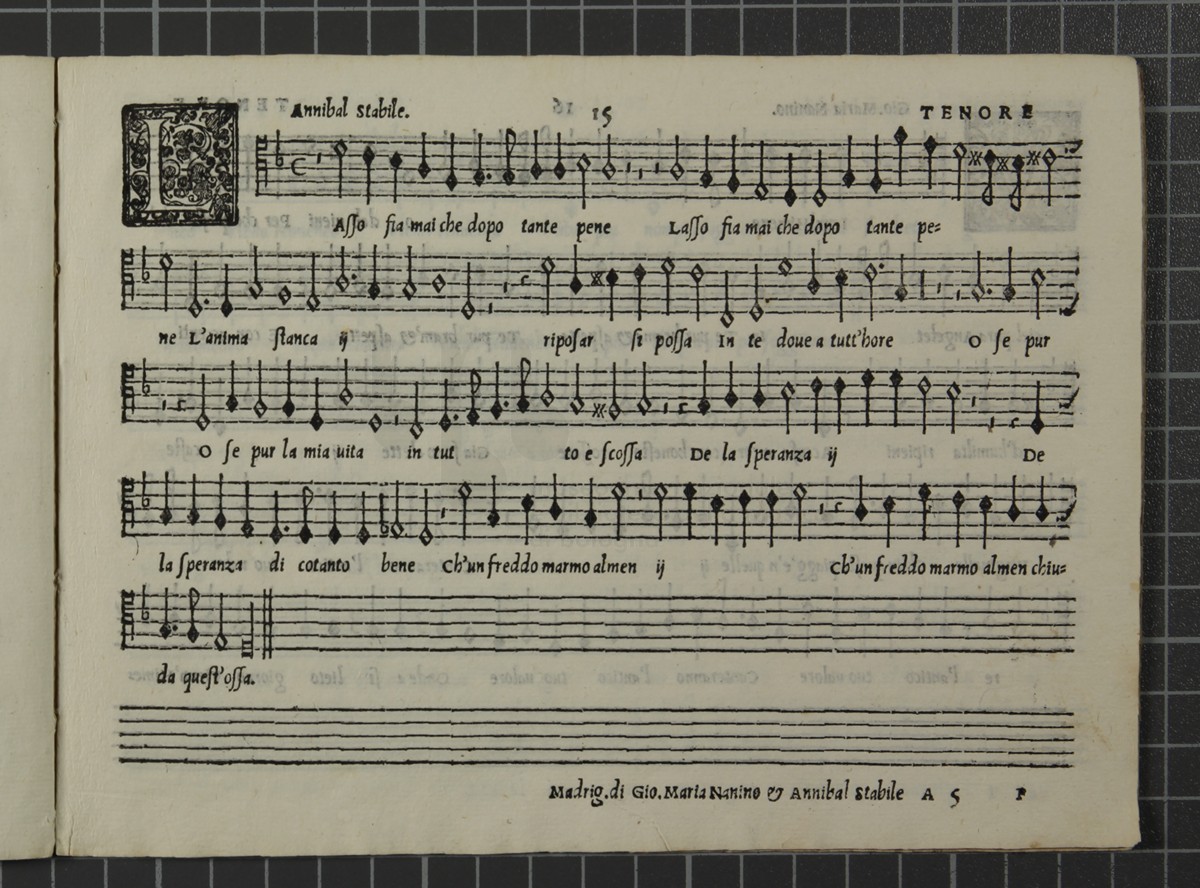 Annibal Stabile. 15 TENORE
LAsso fia mai che dopo tante pene Lasso fia mai che dopo tante pe=
ne L'anima stanca ij riposar si possa In te doue a tutt'hore O se pur
O se pur la mia uita in tut to e scossa De la speranza ij De
la speranza di cotanto bene Ch'un freddo marmo almen ij Ch'un freddo marmo almen chiu=
da quest'ossa.
Madrig. di Gio. Maria Nanino & Annibal Stabile A 5 F